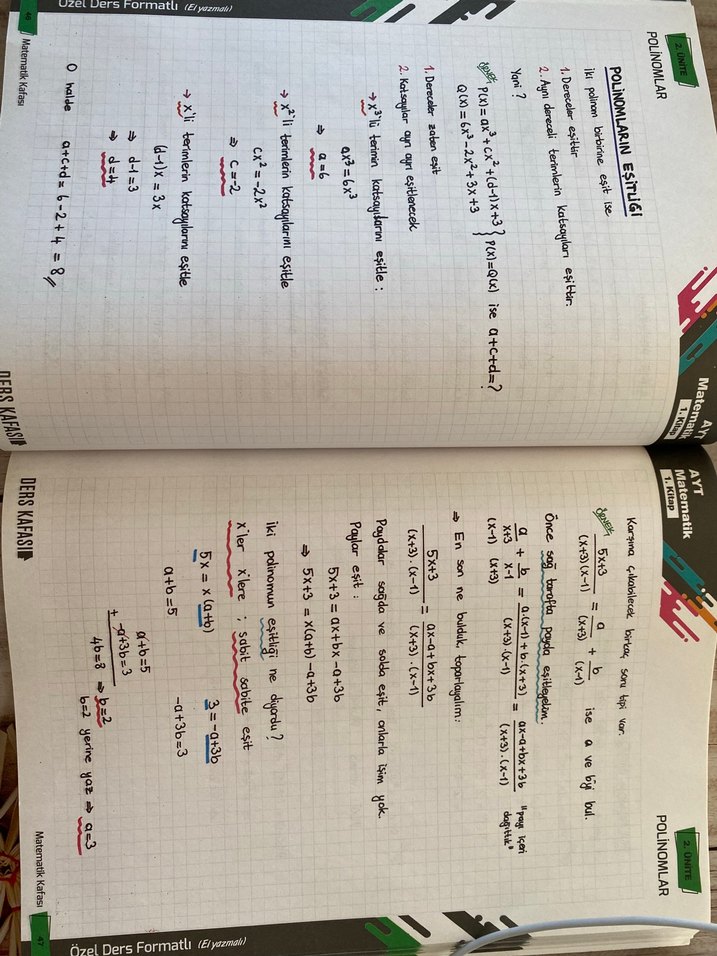 2. ÜNİTE
POLİNOMLAR
AYT
Matematik
1. Kitap
POLİNOMLARIN EŞİTLİĞİ
İki polinom birbirine eşit ise
1. Dereceler eşittir
2. Aynı dereceli terimlerin katsayıları eşittir.
Yani?
örnek P(x)=ax³+cx²+(d-1)x+3 } P(x)=Q(x) ise a+c+d=?
Q(x)=6x³-2x²+3x+3
1. Dereceler zaten eşit
2. Katsayılar ayrı ayrı eşitlenecek
→ x³'lü terimin katsayılarını eşitle:
ax³=6x³
⇒ a=6
→ x²'li terimlerin katsayılarını eşitle
cx²=-2x²
⇒ c=-2
→ x'li terimlerin katsayılarını eşitle
(d-1)x=3x
⇒ d-1=3
⇒ d=4
O halde a+c+d=6-2+4=8//
46 Matematik Kafası
DERS KAFASI
Özel Ders Formatlı (El yazmalı)
AYT
Matematik
1. Kitap
2. ÜNİTE
POLİNOMLAR
Karşına çıkabilecek birkaç soru tipi var.
örnek 5x+3/(x+3)(x-1) = a/(x+3) + b/(x-1) ise a ve b'yi bul.
Önce sağ tarafta payda eşitleyelim.
a/x+3 + b/x-1 = a.(x-1)+b.(x+3)/(x+3).(x-1) = ax-a+bx+3b/(x+3).(x-1) "payı içeri
(x-1) (x+3) dağıttık"
⇒ En son ne bulduk, toparlayalım:
5x+3/(x+3).(x-1) = ax-a+bx+3b/(x+3).(x-1)
Paydalar sağda ve solda eşit, onlarla işim yok.
Paylar eşit:
5x+3=ax+bx-a+3b
⇒ 5x+3=x(a+b)-a+3b
İki polinomun eşitliği ne diyordu?
x'ler x'lere; sabit sabite eşit
5x=x(a+b) 3=-a+3b
a+b=5 -a+3b=3
a+b=5
+ -a+3b=3
4b=8 ⇒ b=2
b=2 yerine yaz ⇒ a=3
DERS KAFASI
Matematik Kafası 47
Özel Ders Formatlı (El yazmalı)